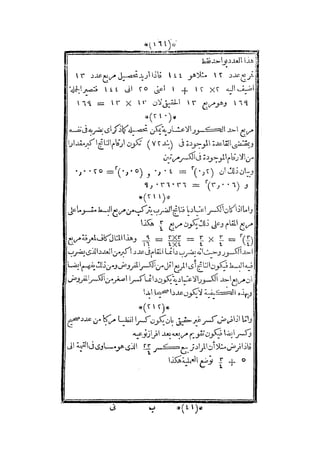 *(١٦٤)*
هذا العدد بواحد فقط
تربيع عدد ١٢ مثلا هو ١٤٤ فاذا اريد تحصيل مربع عدد ١٣
اضيف اليه ٢×١٢ + ١ اعنى ٢٥ الى ١٤٤ فتصير الجملة
١٦٩ وهو مربع ١٣ الحقيقى لان ١٣ × ١٣ = ١٦٩
*(٢١٠)*
مربع احد الكسور الاعشارية يمكن تحصيله كما ذكر اى بضربه فى نفسه
وبمقتضى القاعدة الموجودة فى (بند ٧٢) تكون ارقام الناتج اكبر مقدارا
من الارقام الموجودة فى الكسر مرتين
وبيان ذلك ان (٠,٢)٢ = ٠,٠٤ و (٠,٠٥)٢ = ٠,٠٠٢٥
و (٣,٠٠٦)٢ = ٩,٠٣٦٠٣٦
*(٢١١)*
واما اذا كان الكسر اعتياديا فناتج الضرب يتركب من مربع البسط مقسوما على
مربع المقام وعلى ذلك يكون مربع ٣/٤ هكذا
(٣/٤)٢ = ٣/٤ × ٣/٤ = ٣×٣/٤×٤ = ٩/١٦ وهذا المثال كاف لمعرفة مربع
احد الكسور وحيث انه يضرب دائما المقام فى عدد اكبر من العدد الذى يضرب
فيه البسط فيكون الناتج أى المربع اقل من الكسر المفروض ومن ذلك يفهم ايضا
ان مربع احد الكسور الاعتيادية يكون دائما كسرا اصغر من الكسر المفروض
وبهذه الكيفية لا يكون عددا صحيحا ابدا
*(٢١٢)*
واما اذا فرض كسر غير حقيقى بان يكون كسرا لفظيا مركبا من عدد صحيح
وكسر ايضا فيكون تقويم مربعه بعد افراز نوعيه
فاذا فرض مثلا أن المراد تربيع كسر ٢٣/٤ الذى هو مساوى فى القيمة الى
٥ + ٣/٤ توضع العملية هكذا
*(٤١)* ب فى